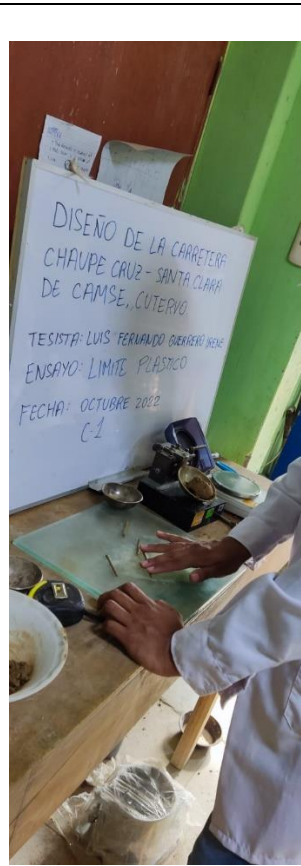 DISEÑO DE LA CARRETERA
CHAUPE CRUZ - SANTA CLARA
DE CAMSE, CUTERVO
TESISTA: LUIS FERNANDO GUERRERO IRENE
ENSAYO: LIMITE PLASTICO
FECHA: OCTUBRE 2022
C-1